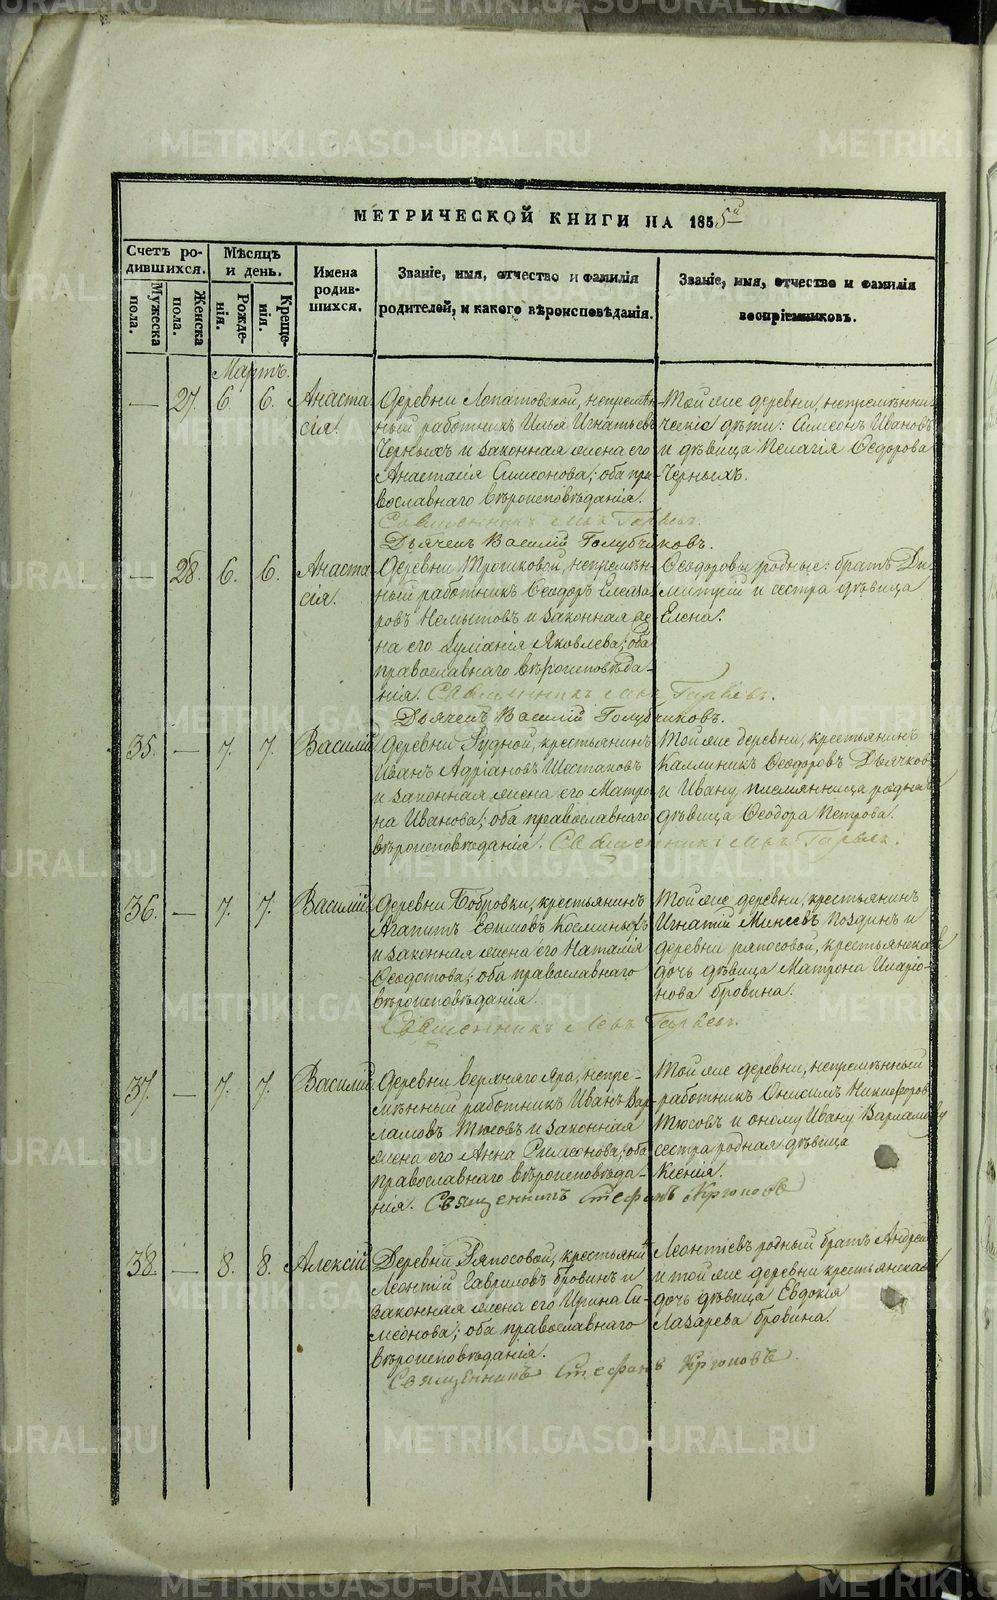 МЕТРИЧЕСКОЙ КНИГИ НА 1855й
Счетъ ро-
дившихся.
Мужеска
пола.
Женска
пола.
Мѣсяцъ
и день.
Рожде-
нія.
Креще-
нія.
Имена
родив-
шихся.
Званіе, имя, отчество и фамилія
родителей, и какого вѣроисповѣданія.
Званіе, имя, отчество и фамилія
воспріемниковъ.
Мартъ.
— 27. 6. 6. Анаста
сія.
Деревни Лопатовской, непремѣн
ный работникъ Илья Игнатьевъ
Черныхъ и законная жена его
Анастасія Симеонова; оба пра-
вославнаго вѣроисповѣданія.
Той же деревни, непремѣнни-
ческіе дѣти: Симеонъ Ивановъ
и дѣвица Пелагія Ѳеодорова
Черныхъ.
Священникъ
Дьячекъ Василій Голубчиковъ.
— 28. 6. 6. Анаста
сія.
Деревни Трошковой, непремѣн-
ный работникъ Ѳеодоръ Елеаза
ровъ Немытовъ и законная же
на его Іуліанія Яковлева; оба
православнаго вѣроисповѣда-
нія. Священникъ
Ѳеодоровы родные: братъ Ди
митрій и сестра дѣвица
Елена.
Дьячекъ Василій Голубчиковъ.
35. — 7. 7. Василій
Деревни Рудной, крестьянинъ
Иванъ Адріановъ Шестаковъ
и законная жена его Матро
на Иванова; оба православнаго
вѣроисповѣданія. Священникъ
Той же деревни, крестьянинъ
Каллиникъ Ѳеодоровъ Дьячков
и Ивану племянница родная
дѣвица Ѳеодора Петрова.
36. — 7. 7. Василій
Деревни Бобровки, крестьянинъ
Агапитъ Ефимовъ Косминыхъ
и законная жена его Наталія
Ѳеодотова; оба православнаго
вѣроисповѣданія.
Той же деревни, крестьянинъ
Игнатій Минеевъ Поздинъ и
деревни ряпосовой, крестьянская
дочь дѣвица Матрона Иларіо-
нова бровина.
Священникъ
37. — 7. 7. Василій
Деревни верхняго Яра, непре-
мѣнный работникъ Иванъ Вар-
ламовъ Тюсовъ и законная
жена его Анна Симеонова; оба
православнаго вѣроисповѣда-
нія. Священникъ Стефанъ
Той же деревни, непремѣнный
работникъ Онисимъ Никифоров
Тюсовъ и оному Ивану Варламову
сестра родная дѣвица
Ксенія.
38. — 8. 8. Алексій
Деревни Ряпосовой, крестьянинъ
Леонтій Гавриловъ бровинъ и
законная жена его Ирина Си-
меонова; оба православнаго
вѣроисповѣданія.
Леонтіевъ родный братъ Андрей
и той же деревни крестьянская
дочь дѣвица Евдокія
Лазарева бровина.
Священникъ Стефанъ
METRIKI.GASO-URAL.RU